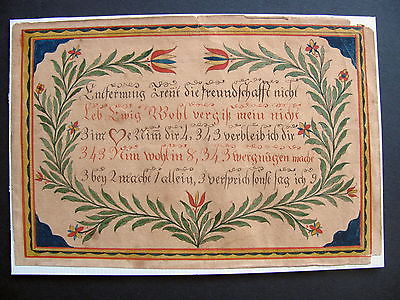 Entfernung Trent die freundschafft nicht
Leb Ewig Wohl vergiß mein nicht
3 mr Nim dir 4. 343 verbleib ich dir
343 Nim wohl in 8, 343 vergnügen macht
3 bey 2 macht 1 allein, 3 versprich sonst sag ich 9